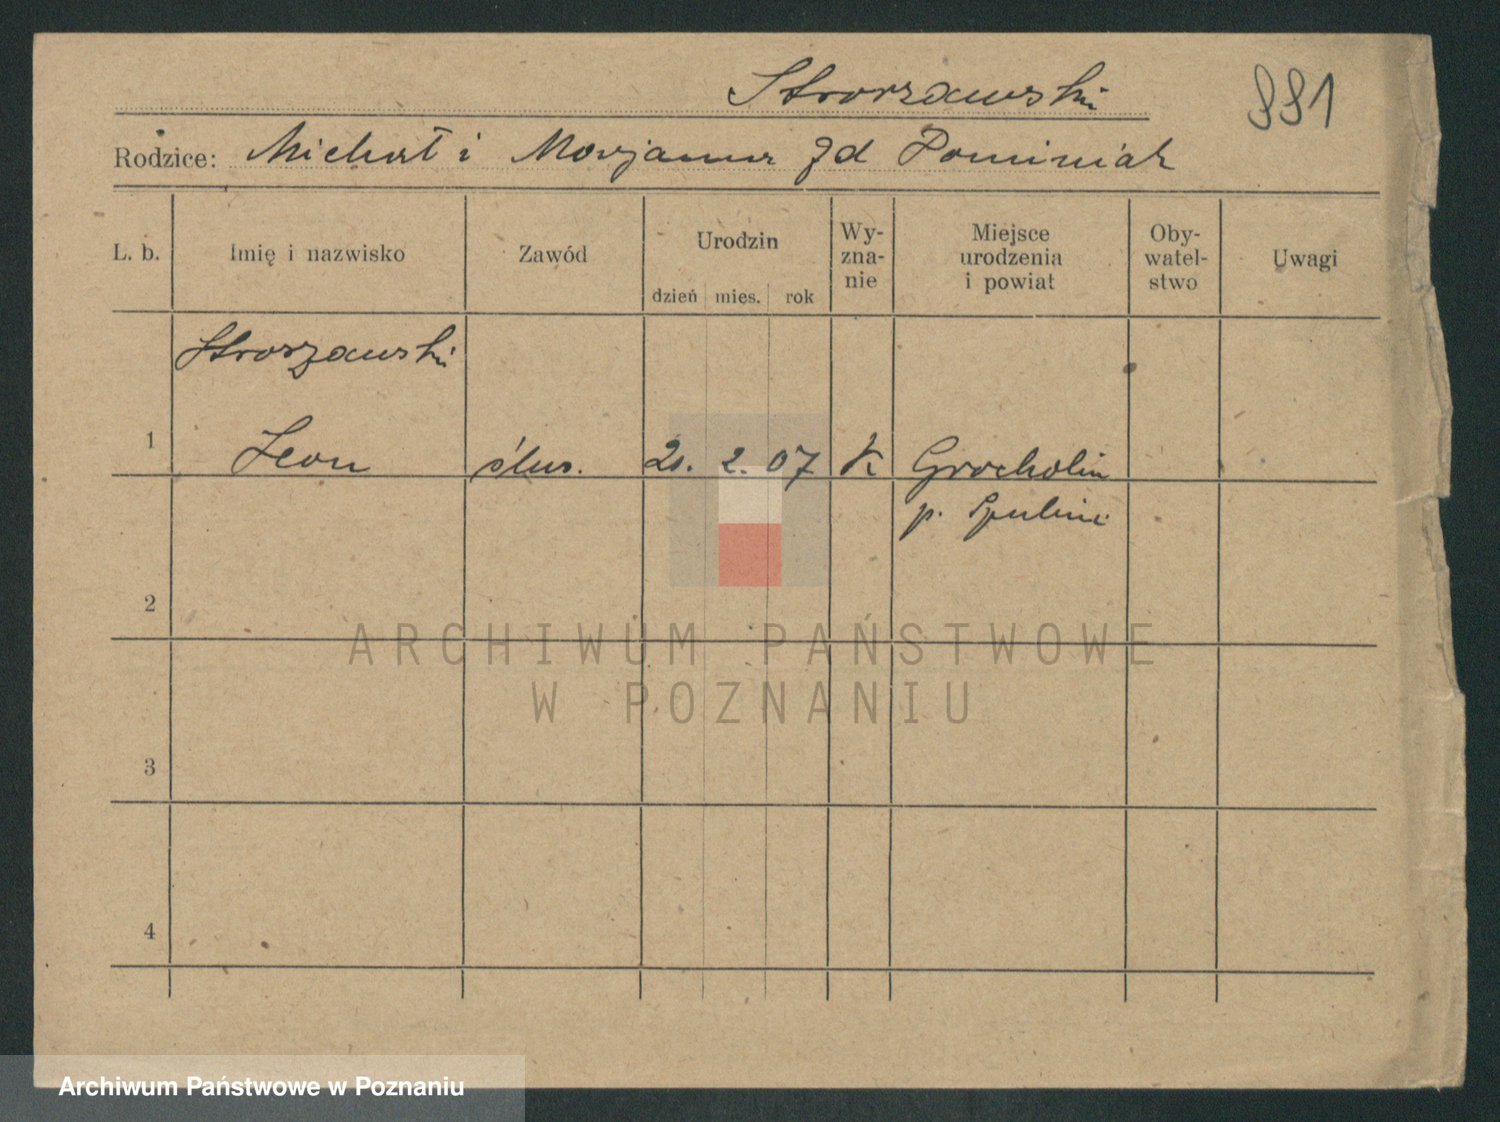 Strorzawski 881
Rodzice: Michał i Marjanna Zd Pominiak
L. b. Imię i nazwisko Zawód Urodzin dzień mies. rok Wy-zna-nie Miejsce urodzenia i powiat Oby-watel-stwo Uwagi
Strorzawski
1 Leon ślus. 20. 2. 07 K Grocholin
p. Szubin
2
3
4
ARCHIWUM PAŃSTWOWE
W POZNANIU
Archiwum Państwowe w Poznaniu